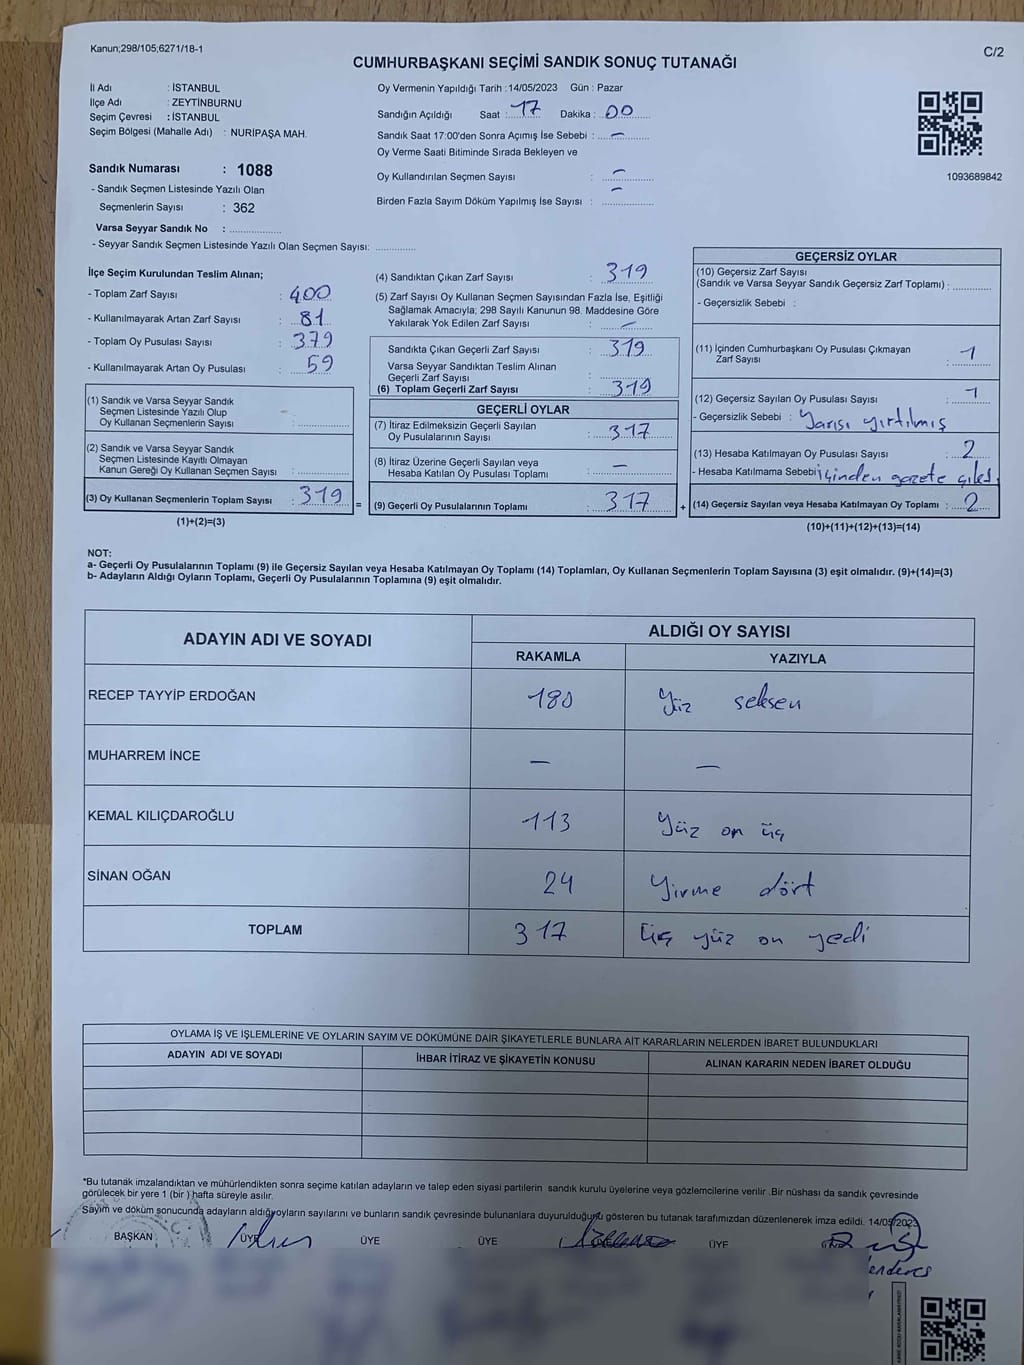 Kanun;298/105;6271/18-1
C/2
CUMHURBAŞKANI SEÇİMİ SANDIK SONUÇ TUTANAĞI
İl Adı : İSTANBUL
İlçe Adı : ZEYTİNBURNU
Seçim Çevresi : İSTANBUL
Seçim Bölgesi (Mahalle Adı) : NURİPAŞA MAH.
Sandık Numarası : 1088
- Sandık Seçmen Listesinde Yazılı Olan
Seçmenlerin Sayısı : 362
Varsa Seyyar Sandık No :
- Seyyar Sandık Seçmen Listesinde Yazılı Olan Seçmen Sayısı:
Oy Vermenin Yapıldığı Tarih :14/05/2023 Gün : Pazar
Sandığın Açıldığı Saat : 17 Dakika : 00
Sandık Saat 17:00'den Sonra Açımış İse Sebebi : —
Oy Verme Saati Bitiminde Sırada Bekleyen ve
Oy Kullandırılan Seçmen Sayısı : —
Birden Fazla Sayım Döküm Yapılmış İse Sayısı : —
1093689842
İlçe Seçim Kurulundan Teslim Alınan;
- Toplam Zarf Sayısı : 400
- Kullanılmayarak Artan Zarf Sayısı : 81
- Toplam Oy Pusulası Sayısı : 379
- Kullanılmayarak Artan Oy Pusulası : 59
(1) Sandık ve Varsa Seyyar Sandık
Seçmen Listesinde Yazılı Olup
Oy Kullanan Seçmenlerin Sayısı :
(2) Sandık ve Varsa Seyyar Sandık
Seçmen Listesinde Kayıtlı Olmayan
Kanun Gereği Oy Kullanan Seçmen Sayısı :
(3) Oy Kullanan Seçmenlerin Toplam Sayısı : 319 =
(1)+(2)=(3)
(4) Sandıktan Çıkan Zarf Sayısı : 319
(5) Zarf Sayısı Oy Kullanan Seçmen Sayısından Fazla İse, Eşitliği
Sağlamak Amacıyla; 298 Sayılı Kanunun 98. Maddesine Göre
Yakılarak Yok Edilen Zarf Sayısı : —
Sandıkta Çıkan Geçerli Zarf Sayısı : 319
Varsa Seyyar Sandıktan Teslim Alınan
Geçerli Zarf Sayısı :
(6) Toplam Geçerli Zarf Sayısı : 319
GEÇERLİ OYLAR
(7) İtiraz Edilmeksizin Geçerli Sayılan
Oy Pusulalarının Sayısı : 317
(8) İtiraz Üzerine Geçerli Sayılan veya
Hesaba Katılan Oy Pusulası Toplamı : —
(9) Geçerli Oy Pusulalarının Toplamı : 317 +
GEÇERSİZ OYLAR
(10) Geçersiz Zarf Sayısı
(Sandık ve Varsa Seyyar Sandık Geçersiz Zarf Toplamı) :
- Geçersizlik Sebebi :
(11) İçinden Cumhurbaşkanı Oy Pusulası Çıkmayan
Zarf Sayısı : 1
(12) Geçersiz Sayılan Oy Pusulası Sayısı : 1
- Geçersizlik Sebebi : Yarısı yırtılmış
(13) Hesaba Katılmayan Oy Pusulası Sayısı : 2
- Hesaba Katılmama Sebebi içinden gazete çıktı
(14) Geçersiz Sayılan veya Hesaba Katılmayan Oy Toplamı : 2
(10)+(11)+(12)+(13)=(14)
NOT:
a- Geçerli Oy Pusulalarının Toplamı (9) ile Geçersiz Sayılan veya Hesaba Katılmayan Oy Toplamı (14) Toplamları, Oy Kullanan Seçmenlerin Toplam Sayısına (3) eşit olmalıdır. (9)+(14)=(3)
b- Adayların Aldığı Oyların Toplamı, Geçerli Oy Pusulalarının Toplamına (9) eşit olmalıdır.
ADAYIN ADI VE SOYADI ALDIĞI OY SAYISI
RAKAMLA YAZIYLA
RECEP TAYYİP ERDOĞAN 180 Yüz seksen
MUHARREM İNCE — —
KEMAL KILIÇDAROĞLU 113 Yüz on üç
SİNAN OĞAN 24 Yirme dört
TOPLAM 317 Üç yüz on yedi
OYLAMA İŞ VE İŞLEMLERİNE VE OYLARIN SAYIM VE DÖKÜMÜNE DAİR ŞİKAYETLERLE BUNLARA AİT KARARLARIN NELERDEN İBARET BULUNDUKLARI
ADAYIN ADI VE SOYADI İHBAR İTİRAZ VE ŞİKAYETİN KONUSU ALINAN KARARIN NEDEN İBARET OLDUĞU
*Bu tutanak imzalandıktan ve mühürlendikten sonra seçime katılan adayların ve talep eden siyasi partilerin sandık kurulu üyelerine veya gözlemcilerine verilir .Bir nüshası da sandık çevresinde
görülecek bir yere 1 (bir ) hafta süreyle asılır.
Sayım ve döküm sonucunda adayların aldığı oyların sayılarını ve bunların sandık çevresinde bulunanlara duyurulduğunu gösteren bu tutanak tarafımızdan düzenlenerek imza edildi. 14/05/2023
BAŞKAN ÜYE ÜYE ÜYE ÜYE ÜYE